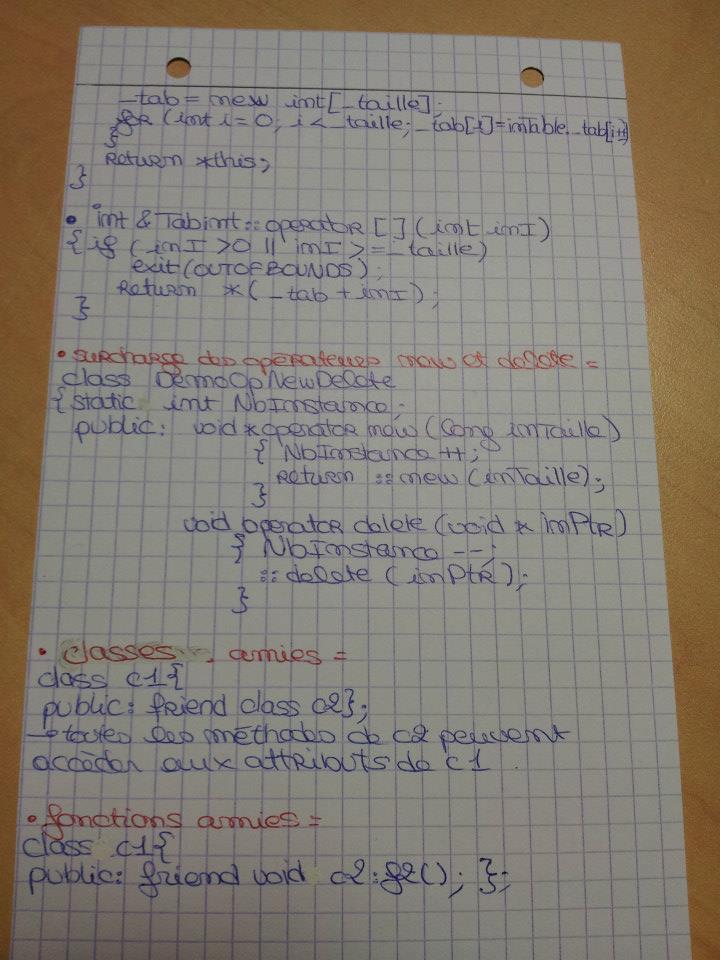 _tab = new int[_taille];
for (int i=0; i<_taille; _tab[i]=inTable._tab[i++])
}
Return *this;
}
• int & Tabint::operator [](int inI)
{if (inI >0 || inI >= _taille)
exit(OUTOFBOUNDS);
Return *(_tab + inI);
}
• surcharge des operateurs new et delete =
class DemoOpNewDelete
{static int NbInstance;
public: void *operator new (long inTaille)
{ NbInstance ++;
Return ::new (inTaille);
}
void operator delete (void * inPtr)
{ NbInstance --;
::delete (inPtr);
}
• classes amies =
class c1{
public: friend class c2};
→ toutes les méthodes de c2 peuvent
accéder aux attributs de c1.
• fonctions amies =
class c1{
public: friend void c2:f2(); };